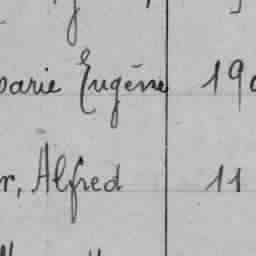 parie Eugène 190
r, Alfred 11